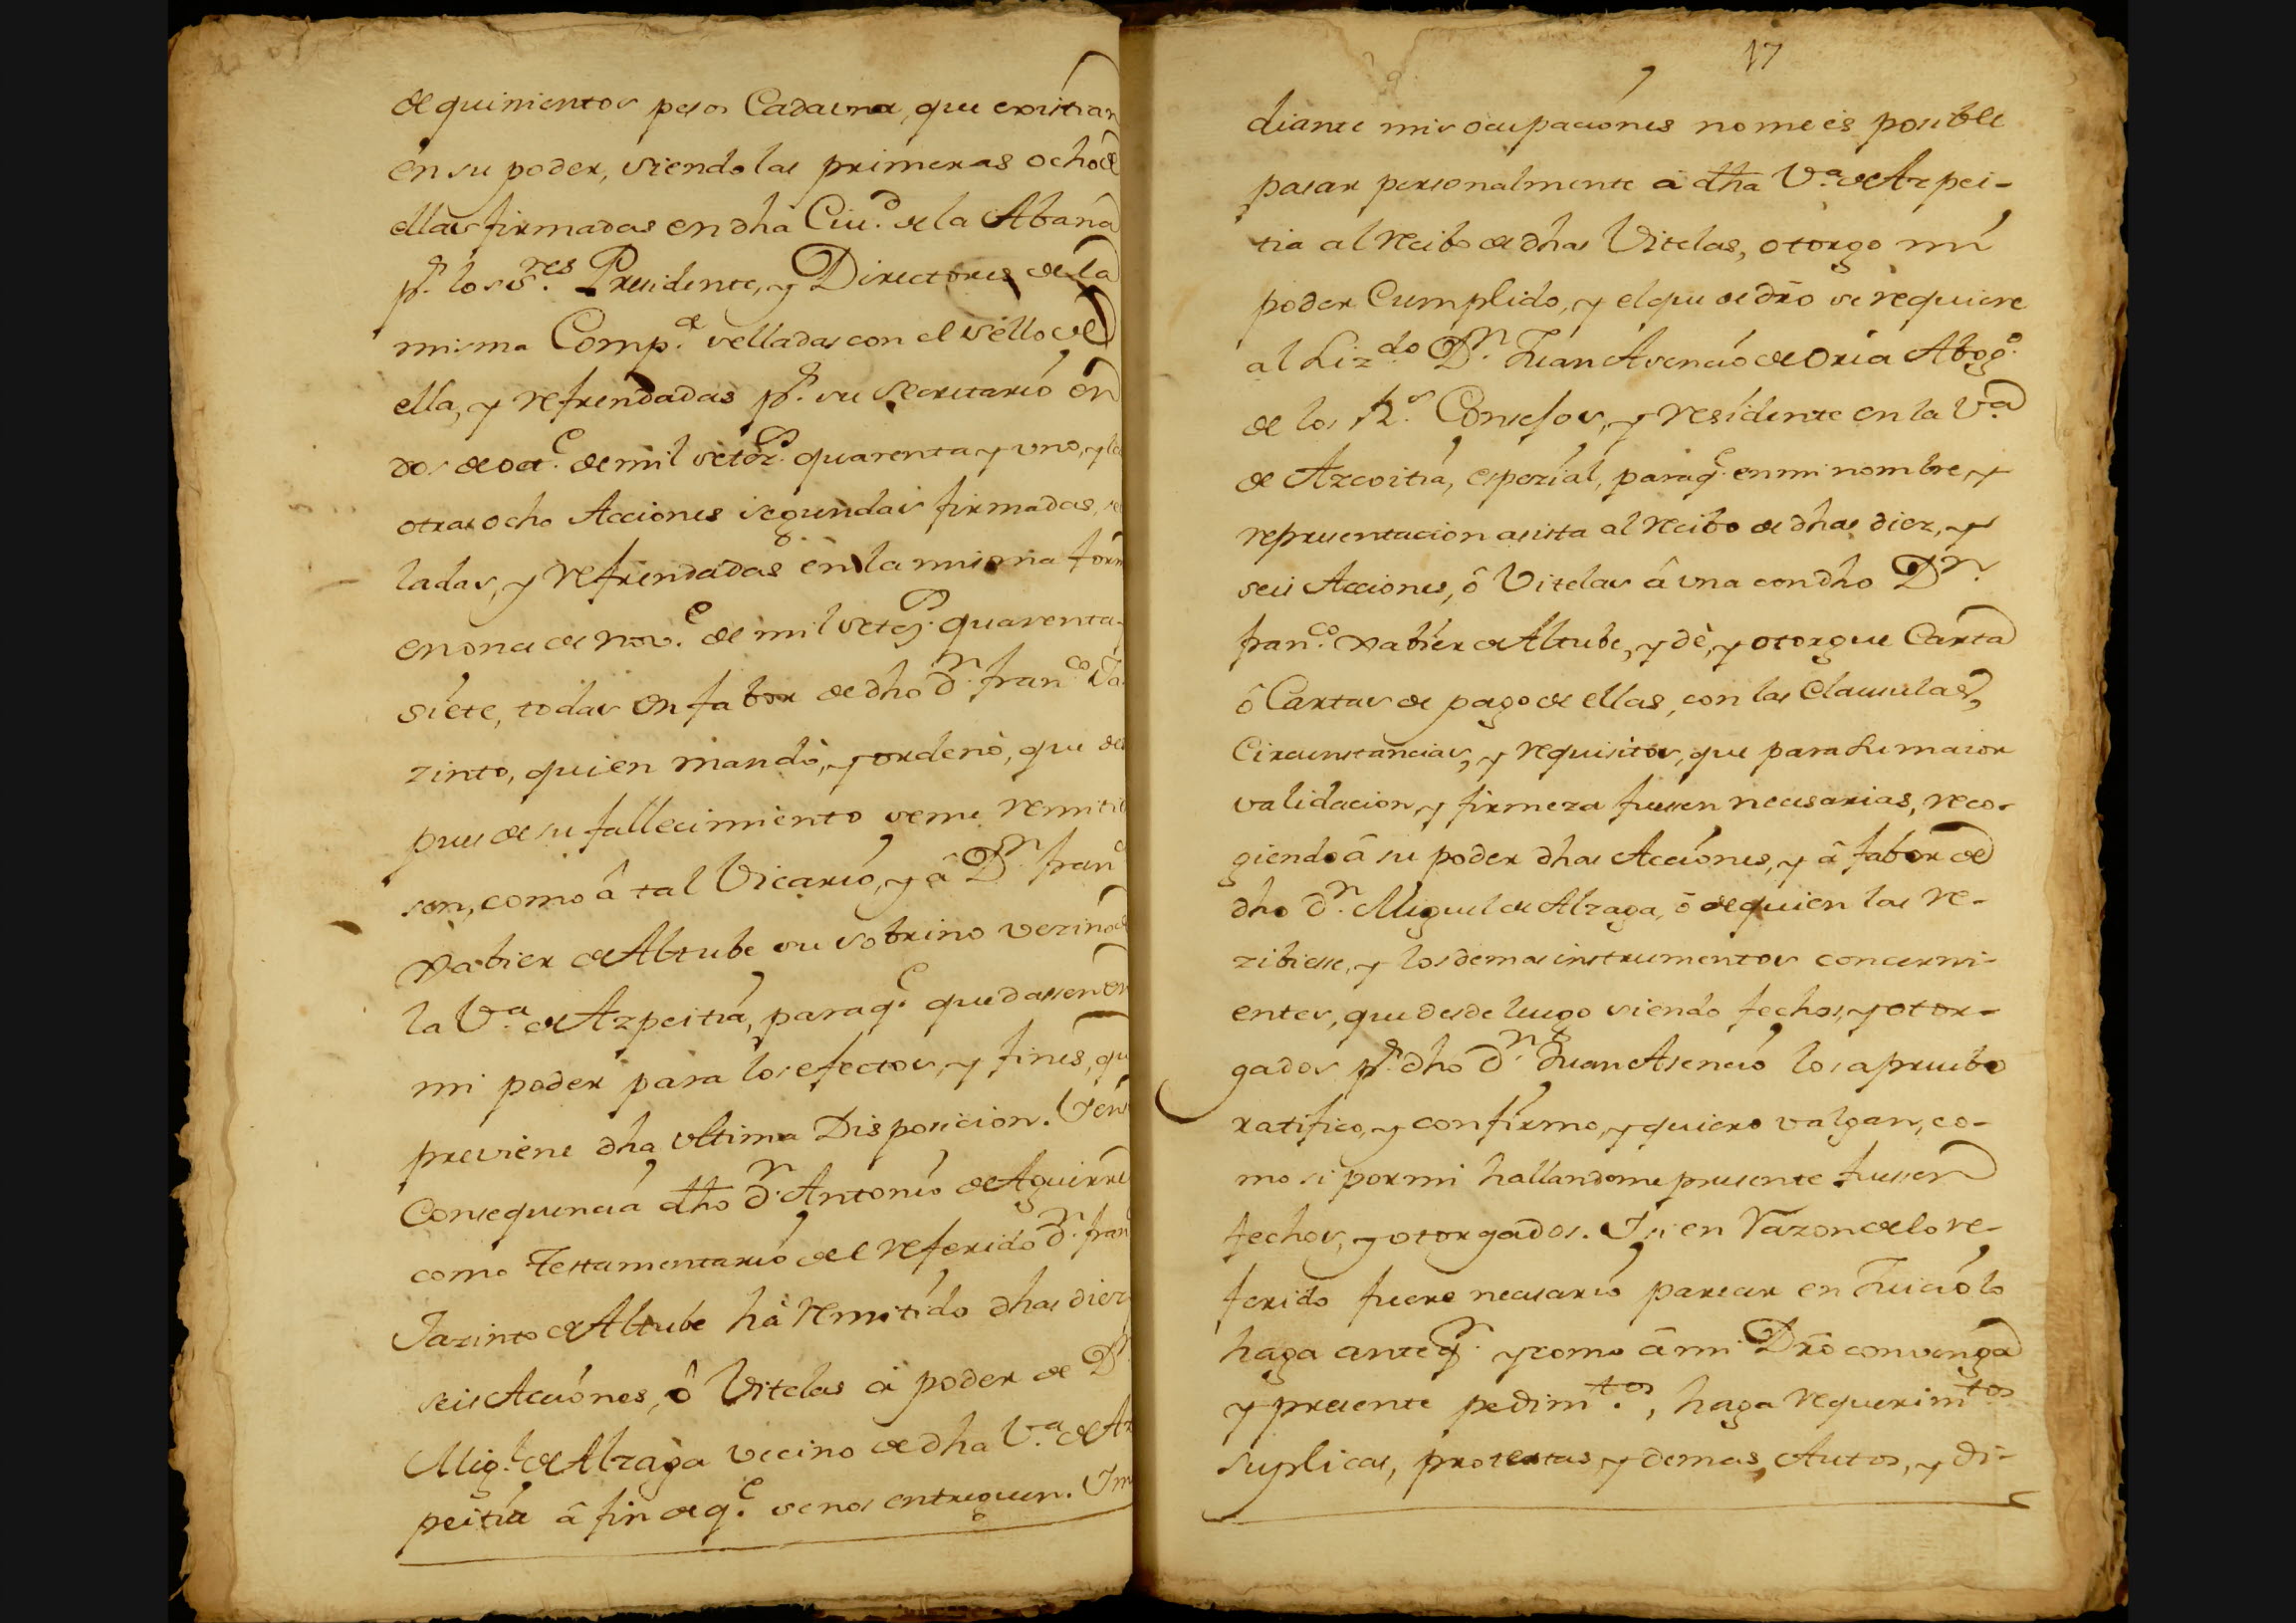 de quinientos pesos Cada una, que existian
en su poder, siendo las primeras ocho de
ellas firmadas en dha Ciu.d de la Abana
p.r los S.res Presidente, y Directores de la
misma Comp.a selladas con el sello de
ella, y refrendadas p.r su Secretario en
dos de oct.e de mil setez.s quarenta y uno, y las
otras ocho Acciones segundas firmadas, se
ladas, y refrendadas en la misma form
en onze de nov.e de mil setez.s quarenta y
siete, todas en fabor de dho d.n fran.co Ja
zinto, quien mandò, y ordenò, que des
pues de su fallecimiento se me remities
sen, como â tal Vicario, y â D.n fran.co
Xabier de Altube su sobrino vezino de
la V.a de Azpeitia, para q.e quedassen en
mi poder para los efectos, y fines, qu
previene dha ultima Disposicion. Y en
Consequencia dho d.n Antonio de Aguirre
como Testamentario del referido d.n fran
Jazinto de Altube hà remitido dhas diez y
seis Acciones, ô Vitelas â poder de D.n
Mig.l de Alzaga vecino de dha V.a de Az
peitia â fin de q.e se nos entreguen. Y m
17
diante mis ocupaciones no me es posible
pasar personalmente â dha V.a de Azpei-
tia al recibo de dhas Vitelas, otorgo mi
poder Cumplido, y el que de dro se requiere
al Liz.do D.n Juan Asencio de Oria Abog.o
de los R.s Consejos, y residente en la V.a
de Azcoitia, espezial, para q.e en mi nombre, y
representacion asista al recibo de dhas diez, y
seis Acciones, ô Vitelas â una con dho D.n
fran.co Xabier de Altube, y dè, y otorgue Carta
ô Cartas de pago de ellas, con las Clausulas,
Circunstancias, y requisitos, que para su maior
validacion, y firmeza fuesen necesarias, reco-
giendo â su poder dhas Acciones, y â fabor de
dho d.n Miguel de Alzaga, ô de quien las re-
zibiesse, y los demas instrumentos concerni-
entes, que desde luego siendo fechos, y otor-
gados p.r dho d.n Juan Asencio los apruebo
ratifico, y confirmo, y quiero valgan, co-
mo si por mi hallandome presente fuessen
fechos, y otorgados. Y si en razon de lo re-
ferido fuere necesario parecer en Juicio lo
haga ante q.n y como â mi Dro convenga
y presente pedim.tos, haga requerim.tos
suplicas, protestas, y demas, Autos, y di-